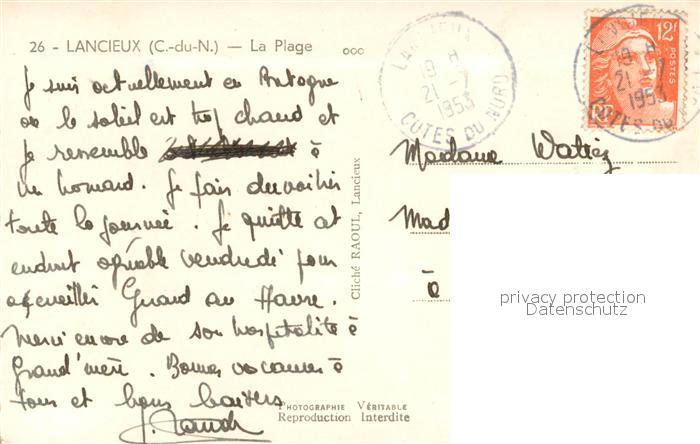 26 - LANCIEUX (C.-du-N.) — La Plage
Je suis actuellement en Bretagne
où le soleil est trop chaud et
je ressemble à
un homard. Je fais du voilier
toute la journée. Je quitte cet
endroit agréable vendredi pour
accueillir au Havre.
Merci encore de son hospitalité à
Grand'mère. Bonnes vacances à
tous et bons baisers
PHOTOGRAPHIE VÉRITABLE
Reproduction Interdite
Cliché RAOUL, Lancieux
LANCIEUX
19 H
21 - 7
1953
COTES DU NORD
12F
POSTES
19 H
21 - 7
1953
COTES DU
Madame
Mad
à
privacy protection
Datenschutz